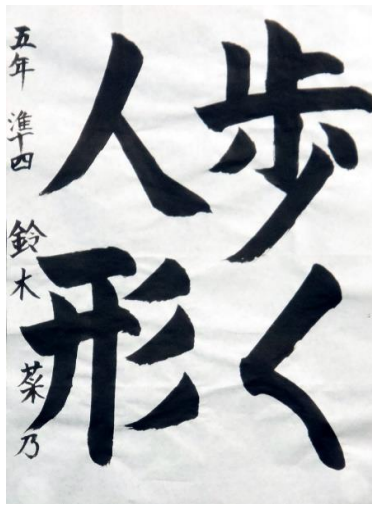 歩く
人形
五年 準十四 鈴木 菜乃